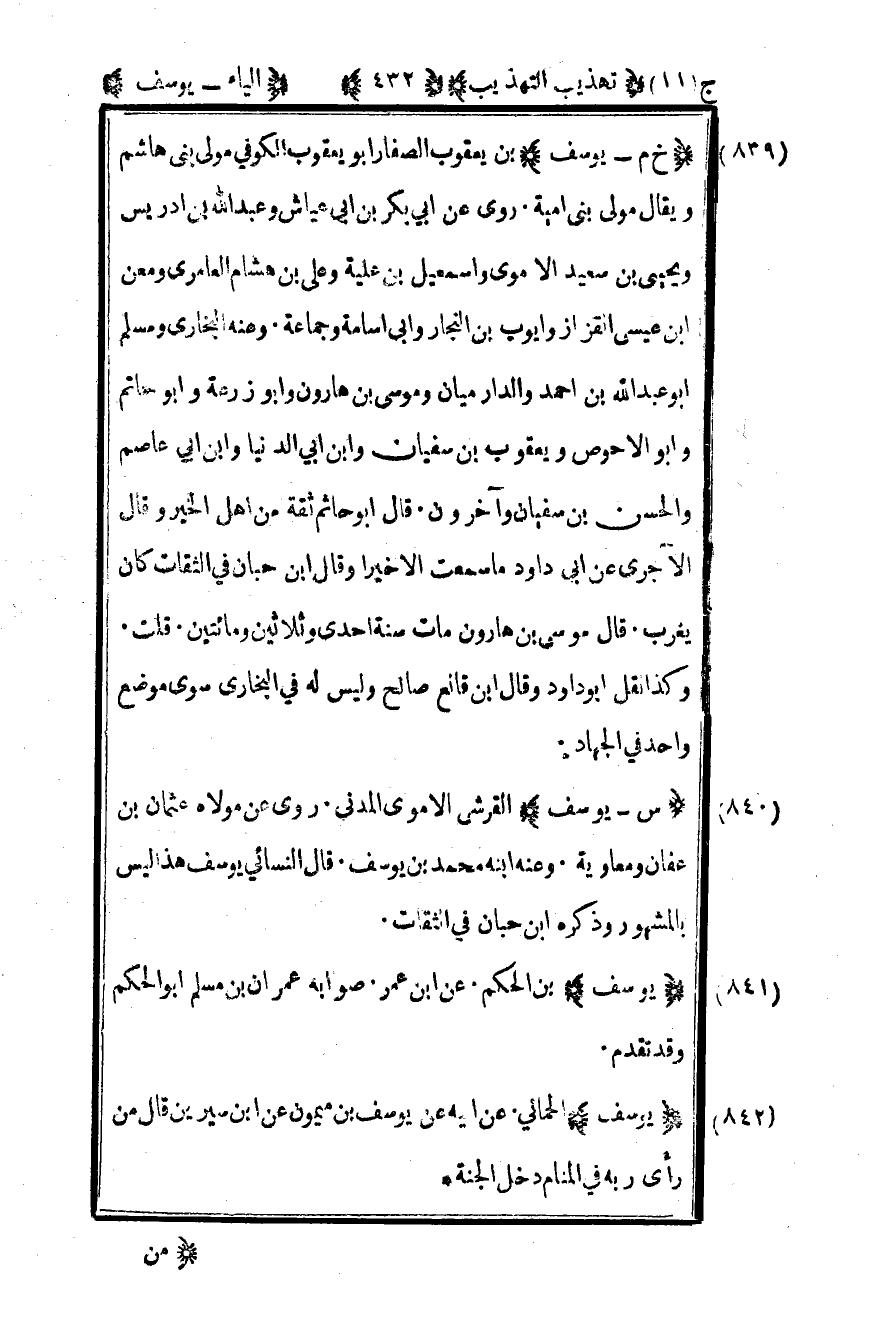 ج (١١) ﴿ تهذيب التهذيب ﴾ ﴿ ٤٣٢ ﴾ ﴿ الياء ــ يوسف ﴾
(٨٣٩) ﴿ خ م ــ يوسف ﴾ بن يعقوب الصفار ابو يعقوب الكوفي مولى بنى هاشم
ويقال مولى بنى امية · روى عن ابي بكر بن ابي عياش وعبدالله بن ادريس
ويحيى بن سعيد الاموى واسمعيل بن علية وعلى بن هشام العامرى ومعن
ابن عيسى القزاز وايوب بن النجار وابى اسامة وجماعة · وعنه البخارى ومسلم
ابو عبدالله بن احمد والدارميان وموسى بن هارون وابو زرعة وابو حاتم
وابو الاحوص ويعقوب بن سفيان وابن ابي الدنيا وابن ابي عاصم
والحسن بن سفيان وآخرون · قال ابو حاتم ثقة من اهل الخير وقال
الآجرى عن ابى داود ماسمعت الاخيرا وقال ابن حبان في الثقات كان
يغرب · قال موسى بن هارون مات سنة احدى وثلاثين ومائتين · قلت ·
وكذا نقل ابو داود وقال ابن قانع صالح وليس له في البخارى سوى موضع
واحد في الجهاد ·
(٨٤٠) ﴿ س ــ يوسف ﴾ القرشى الاموى المدنى · روى عن مولاه عثمان بن
عفان ومعاوية · وعنه ابنه محمد بن يوسف · قال النسائي يوسف هذا ليس
بالمشهور وذكره ابن حبان في الثقات ·
(٨٤١) ﴿ يوسف ﴾ بن الحكم · عن ابن عمر · صوابه عمران بن مسلم ابو الحكم
وقد تقدم ·
(٨٤٢) ﴿ يوسف ﴾ الحمائي · عن ابيه عن يوسف بن ميمون عن ابن سيرين قال من
رأى ربه في المنام دخل الجنة *
﴿ من